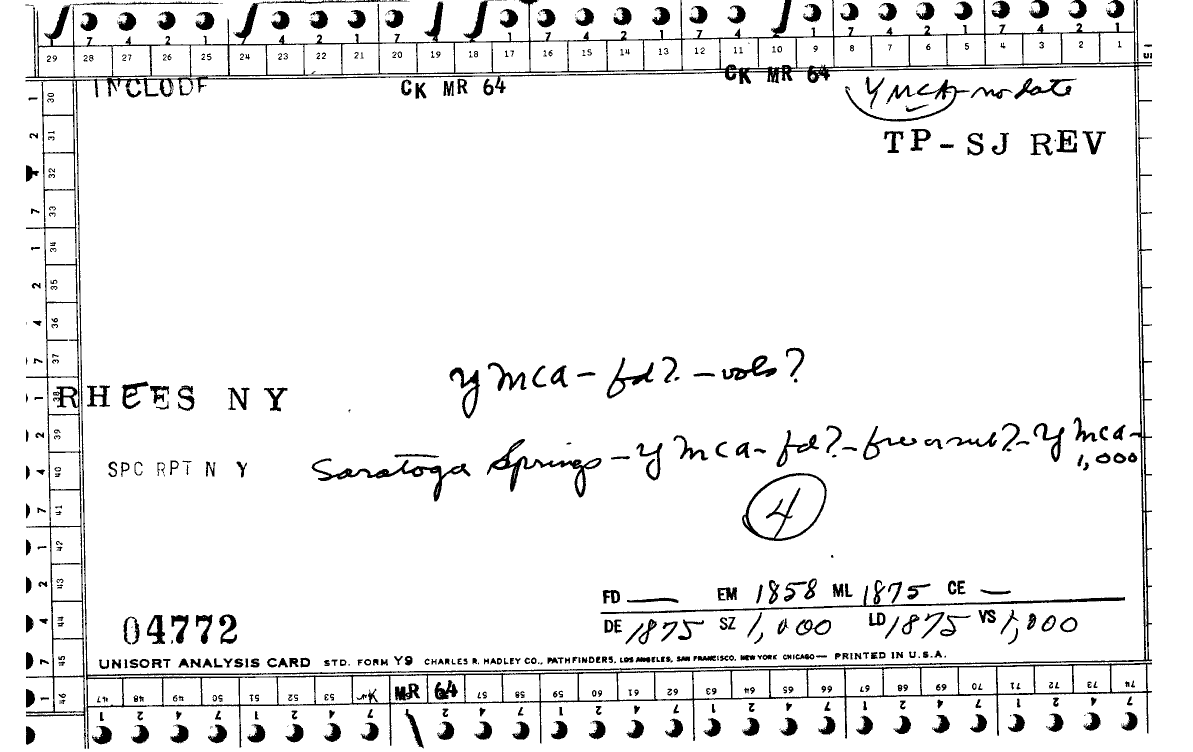 7 4 2 1 7 4 2 1 7 4 1 7 4 2 1 7 4 2 1 7 4 2 1 7 4 2 1
29 28 27 26 25 24 23 22 21 20 19 18 17 16 15 14 13 12 11 10 9 8 7 6 5 4 3 2 1
INCLUDE CK MR 64 CK MR 64 YMCA - no date
TP- SJ REV
1 30
2 31
4 32
7 33
1 34
2 35
4 36
7 37
1 38
2 39
4 40
7 41
1 42
2 43
4 44
7 45
1 46
YMCA - fd? - vols?
RHEES NY
SPC RPT N Y Saratoga Springs - YMCA - fd? - free or sub? - YMCA - 1,000
4
FD — EM 1858 ML 1875 CE —
04772 DE 1875 SZ 1,000 LD 1875 VS 1,000
UNISORT ANALYSIS CARD STD. FORM Y9 CHARLES R. HADLEY CO., PATHFINDERS, LOS ANGELES, SAN FRANCISCO, NEW YORK CHICAGO — PRINTED IN U.S.A.
47 48 49 50 51 52 53 MR 64 57 58 59 60 61 62 63 64 65 66 67 68 69 70 71 72 73 74
1 2 4 7 1 2 4 7 1 2 4 7 1 2 4 7 1 2 4 7 1 2 4 7 1 2 4 7